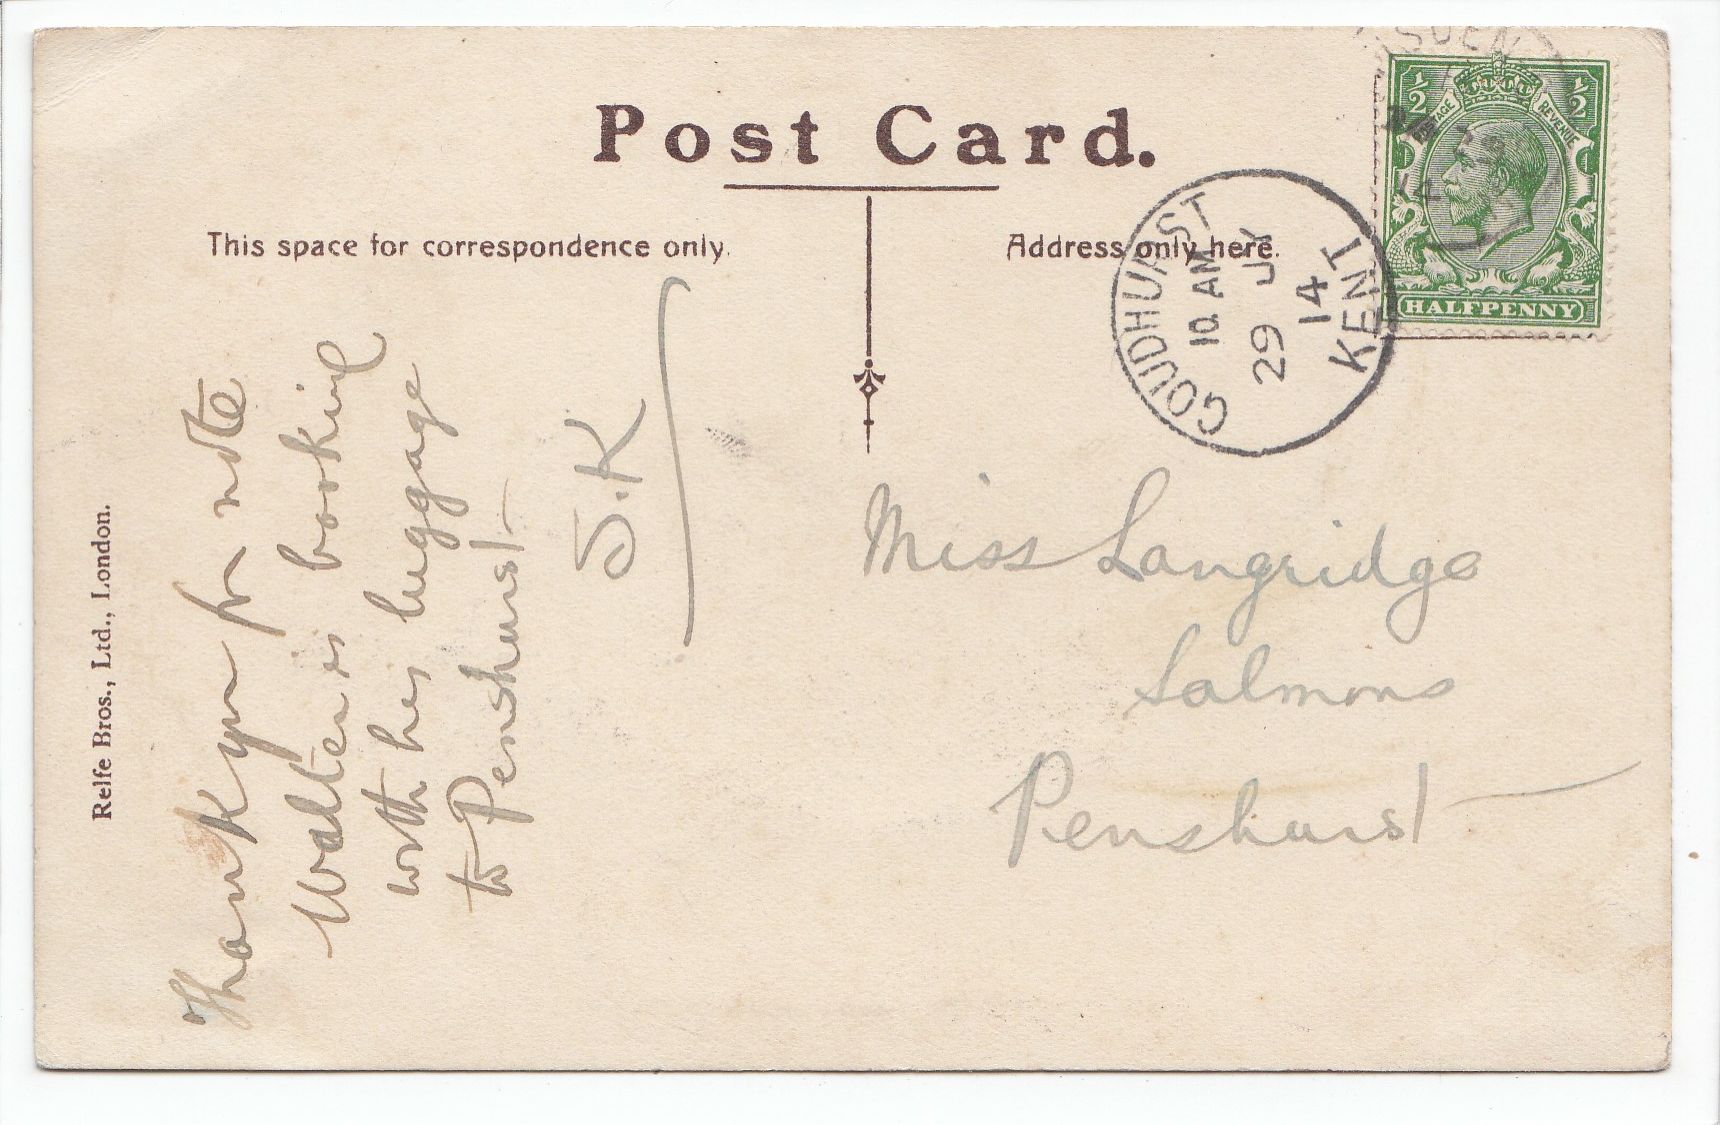 Post Card.
This space for correspondence only.
Address only here.
Relfe Bros., Ltd., London.
Thank you for note
Walter is booking
with his luggage
to Penshurst
J.K
Miss Langridge
Salmons
Penshurst
GOUDHURST
10. AM
29 JY
14
KENT
SDEN
14
½ ½
POSTAGE REVENUE
HALFPENNY